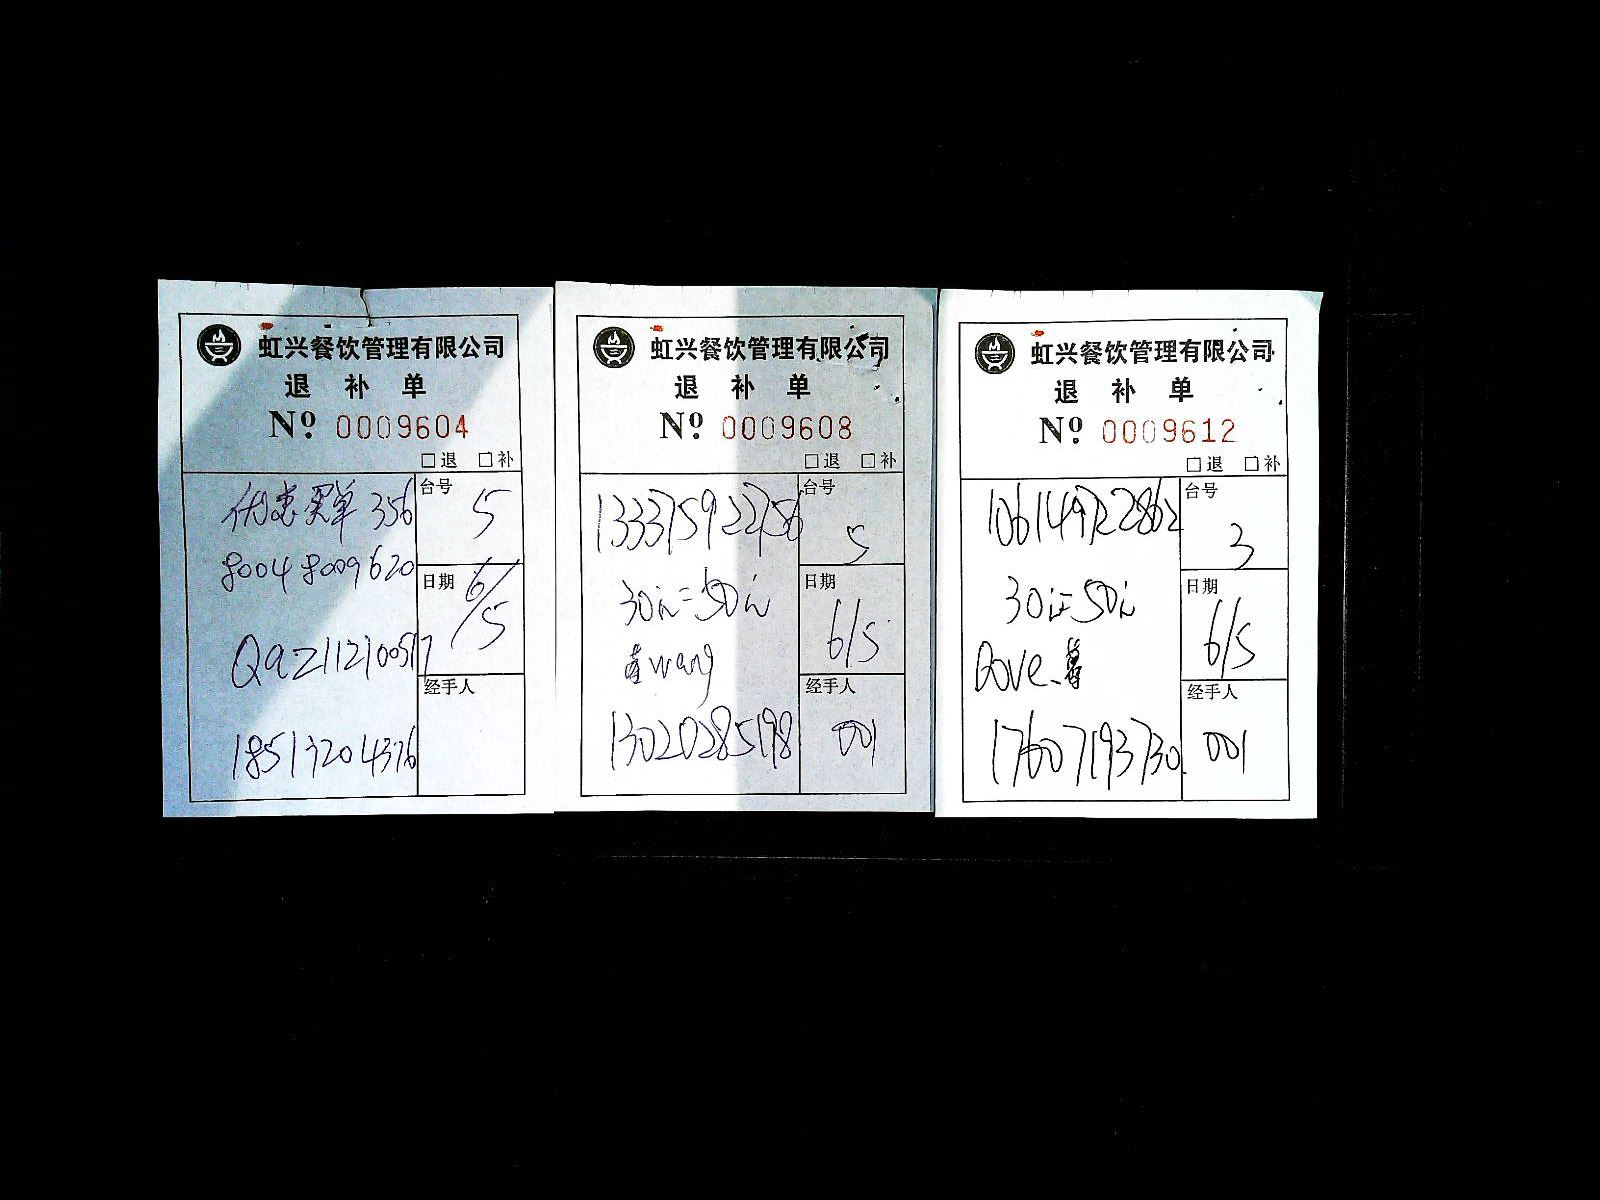 虹兴餐饮管理有限公司
退 补 单
Nº. 0009604
□退 □补
优惠买单 356
80048009620
Qaz112100517
18513204376
台号
5
日期
6/5
经手人
虹兴餐饮管理有限公司
退 补 单
Nº. 0009608
□退 □补
30元=50元
wang
13020285198
台号
5
日期
6/5
经手人
001
虹兴餐饮管理有限公司
退 补 单
Nº. 0009612
□退 □补
30元=50元
Dove.
17607193730
台号
3
日期
6/5
经手人
001